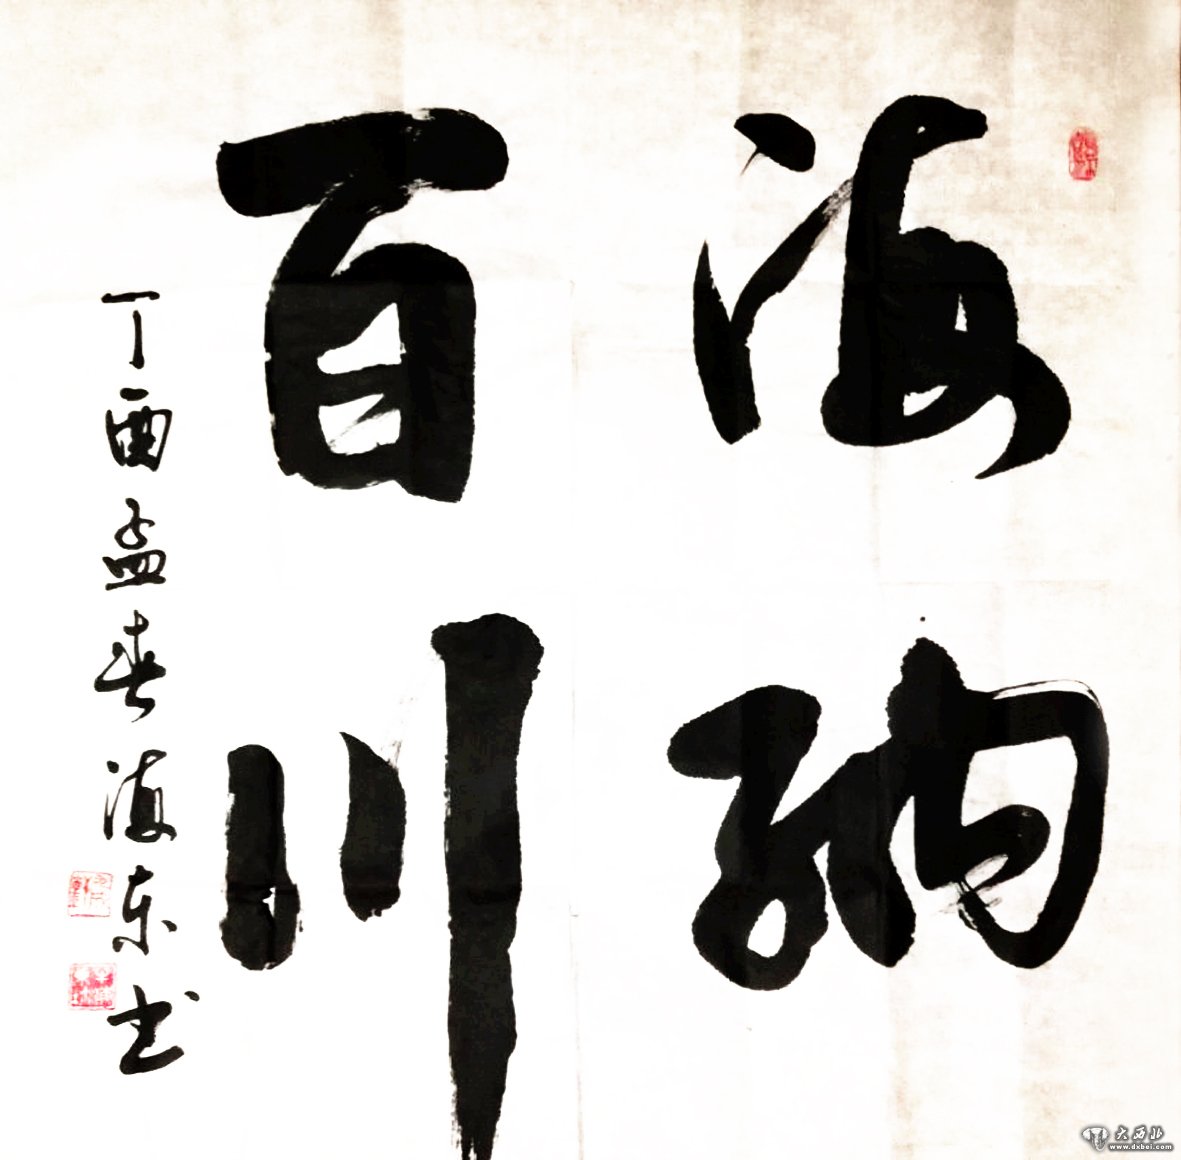 海纳
百川
丁酉孟春海东书
大西北
www.dxbei.com